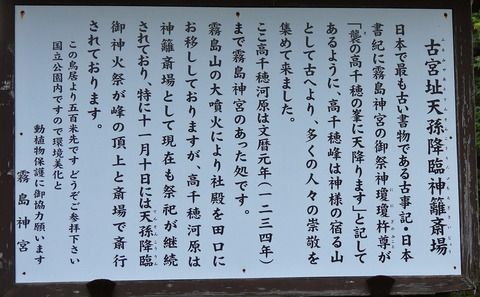 古宮址天孫降臨神籬斎場
日本で最も古い書物である古事記・日本
書紀に霧島神宮の御祭神瓊瓊杵尊が
「襲の高千穂の峯に天降ります」と記して
あるように、高千穂峰は神様の宿る山
として古へより、多くの人々の崇敬を
集めて来ました。
ここ高千穂河原は文暦元年(一二三四年)
まで霧島神宮のあった処です。
霧島山の大噴火により社殿を田口に
お移ししておりますが、高千穂河原は
神籬斎場として現在も祭祀が継続
されており、特に十一月十日には天孫降臨
御神火祭が峰の頂上と斎場で斎行
されております。
この鳥居より五百米先です どうぞご参拝下さい
国立公園内ですので環境美化と
動植物保護に御協力願います
霧島神宮